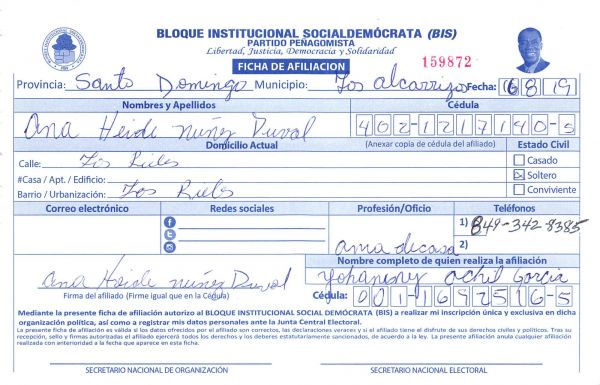 BLOQUE INSTITUCIONAL SOCIALDEMÓCRATA (BIS)
PARTIDO PEÑAGOMISTA
Libertad, Justicia, Democracia y Solidaridad
FICHA DE AFILIACION
159872
Provincia: Santo Domingo Municipio: Los alcarrizos Fecha: 6 8 19
Nombres y Apellidos Cédula
Ana Heide Nuñez Duval 402-1217140-5
Domicilio Actual (Anexar copia de cédula del afiliado) Estado Civil
Calle: Los Rieles Casado
#Casa / Apt. / Edificio: Soltero
Barrio / Urbanización: Los Rieles Conviviente
Correo electrónico Redes sociales Profesión/Oficio Teléfonos
1) 849-342-8385
ama de casa 2)
Nombre completo de quien realiza la afiliación
Ana Heide Nuñez Duval Yohanny García
Firma del afiliado (Firme igual que en la Cédula) Cédula: 001-1692516-5
Mediante la presente ficha de afiliación autorizo al BLOQUE INSTITUCIONAL SOCIAL DEMÓCRATA (BIS) a realizar mi inscripción única y exclusiva en dicha
organización política, así como a registrar mis datos personales ante la Junta Central Electoral.
La presente ficha de afiliación es válida si los datos ofrecidos por el afiliado son correctos, las declaraciones veraces y si el afiliado tiene el disfrute de sus derechos civiles y políticos. Tras su
recepción, sello y firmas autorizadas el afiliado ejercerá todos los derechos y los deberes estatutariamente sancionados, de acuerdo a la ley. La presente afiliación anula cualquier afiliación
realizada con anterioridad a la fecha que aparece en esta ficha.
SECRETARIO NACIONAL DE ORGANIZACIÓN SECRETARIO NACIONAL ELECTORAL